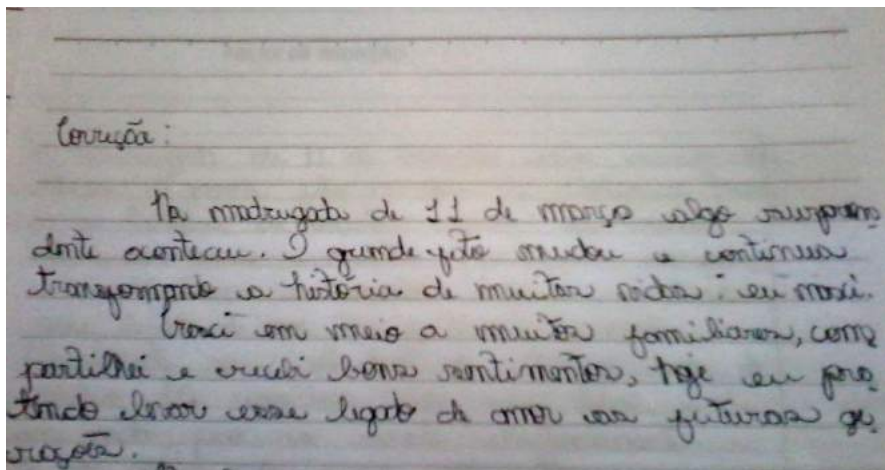 Correção:
Na madrugada de 11 de março algo surpreen
dente aconteceu. O grande fato mudou e continua
transformando a história de muitas vidas: eu nasci.
Cresci em meio a muitos familiares, com
partilhei e recebi bons sentimentos, hoje eu pre
tendo levar esse legado de amor as futuras ge
rações.